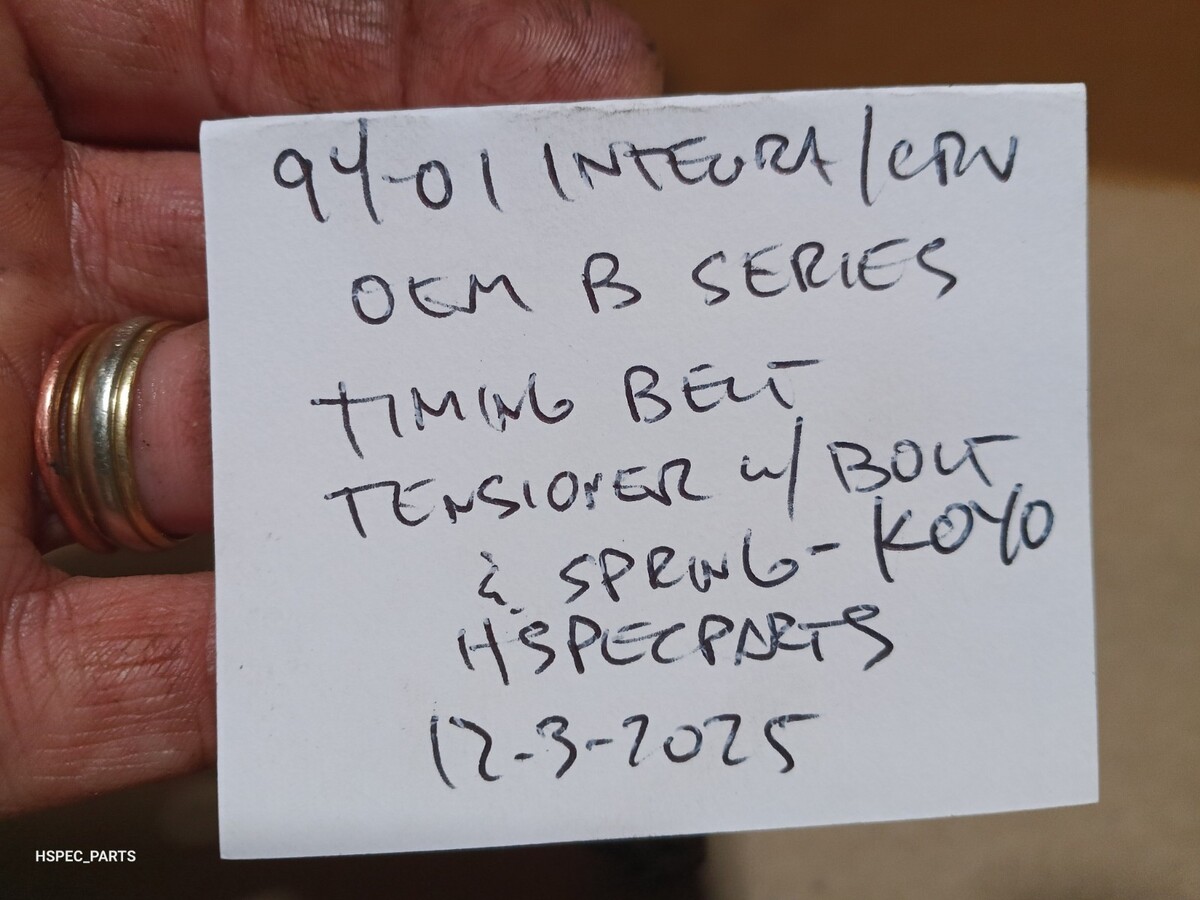 94-01 INTEGRA/CRV
OEM B SERIES
TIMING BELT
TENSIONER W/ BOLT
& SPRING - KOYO
HSPECPARTS
12-3-2025
HSPEC_PARTS